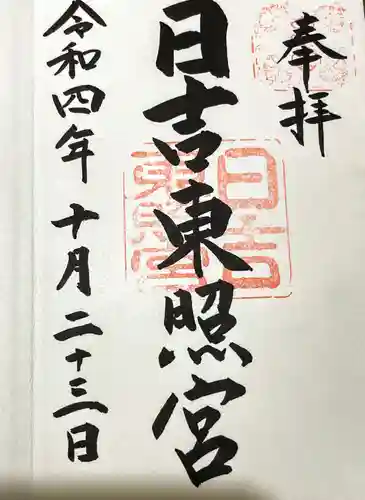 奉拝
日吉東照宮
日吉東照宮
令和四年十月二十三日